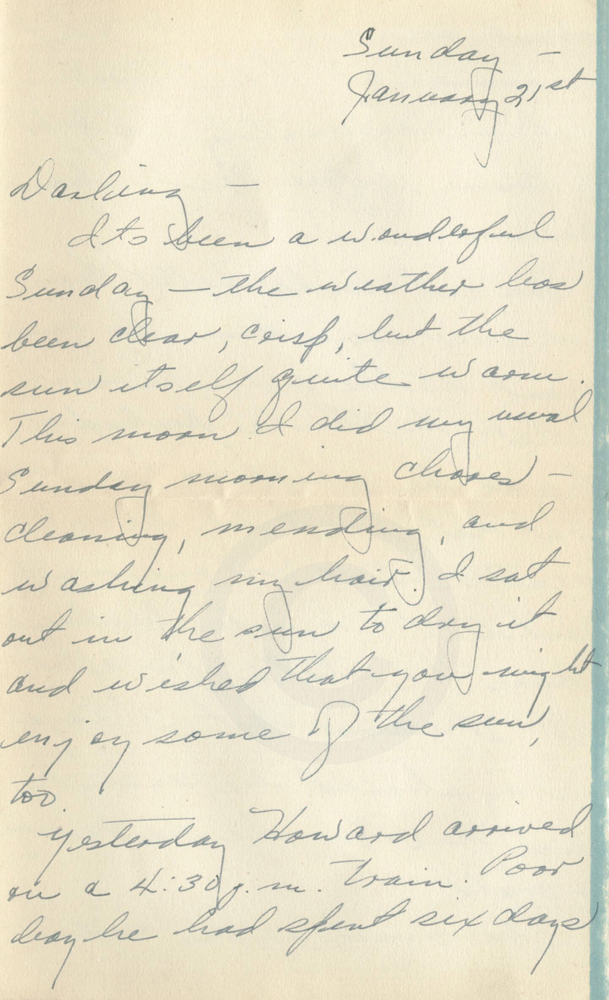 Sunday –
January 21st
Darling –
Its been a wonderful
Sunday – the weather has
been clear, crisp, but the
sun itself quite warm.
This morn I did my usual
Sunday morning chores –
cleaning, mending, and
washing my hair. I sat
out in the sun to dry it
and wished that you might
enjoy some of the sun,
too.
Yesterday Howard arrived
on a 4:30 p.m. train. Poor
boy he had spent six days